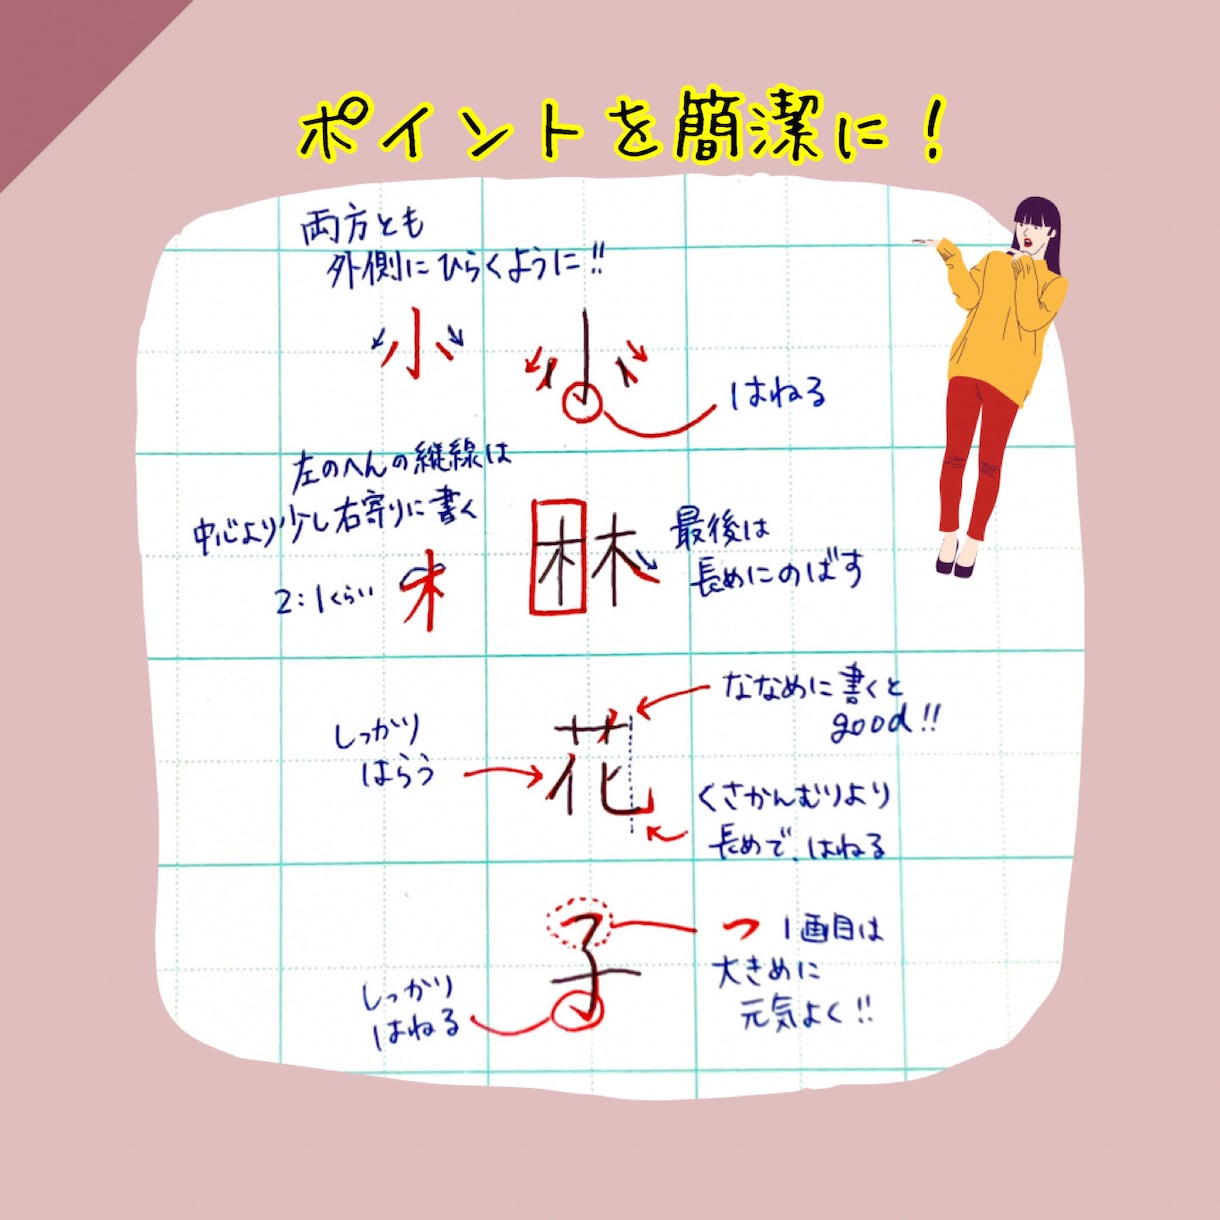 ポイントを簡潔に！
両方とも
外側にひらくように!!
小
小
はねる
左のへんの縦線は
中心より少し右寄りに書く
2:1くらい
木
林
最後は
長めにのばす
ななめに書くと
good!!
しっかり
はらう
花
くさかんむりより
長めで、はねる
子
つ 1画目は
大きめに
元気よく!!
しっかり
はねる